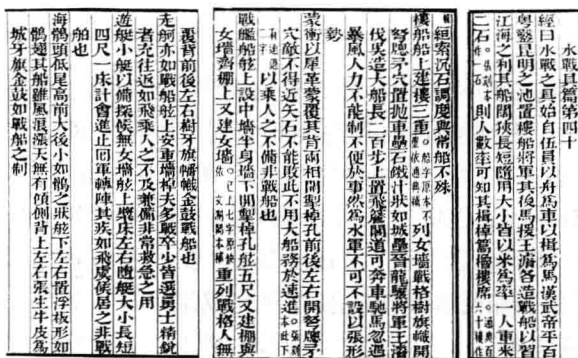 水戰具篇第四十
經曰水戰之具始自伍員以舟為車以楫為馬漢武帝平百
粵鑿昆明之池置樓船將軍其後馬援王濬各造戰船以習
江海之利其船闊狹長短隨用大小皆以米為率一人重米
二石。張刻本作一石則人數率可知其楫棹篙櫓樓席。
絙索沉石調度與常船不殊
樓船船上建樓三重。船字原本不重依通典增列女墻戰格樹旗幟開
弩牕矛穴置拋車壘石鐵汁狀如城壘晉龍驤將軍王濬
伐吳造大船長二百步上置飛簷閣道可奔車馳馬忽遇
暴風人力不能制不便於事然為水軍不可不設以張形
勢
蒙衝以犀革蒙覆其背兩相開掣棹孔前後左右開弩牕矛
穴敵不得近矢石不能敗此不用大船務於速進。張刻本此下
有速退二字以乘人之不備非戰船也
戰艦船舷上設中墻半身墻下開掣棹孔舷五尺又建棚與
女墻齊棚上又建女墻。已上七字原缺依文瀾閣本補重列戰格人無
覆背前後左右樹牙旗幡幟金鼓戰船也
走舸亦如戰船舷上安重墻棹夫多戰卒少皆選勇士精銳
者充往返如飛乘人之不及兼備非常救急之用
遊艇小艇以備探候無女墻舷上槳床左右隨艇大小長短
四尺一床計會進止回軍轉陣其疾如飛虞候居之非戰
船也
海鶻頭低尾高前大後小如鶻之狀舷下左右置浮板形如
鶻翅其船雖風浪漲天無有傾側背上左右張生牛皮為
城牙旗金鼓如戰船之制